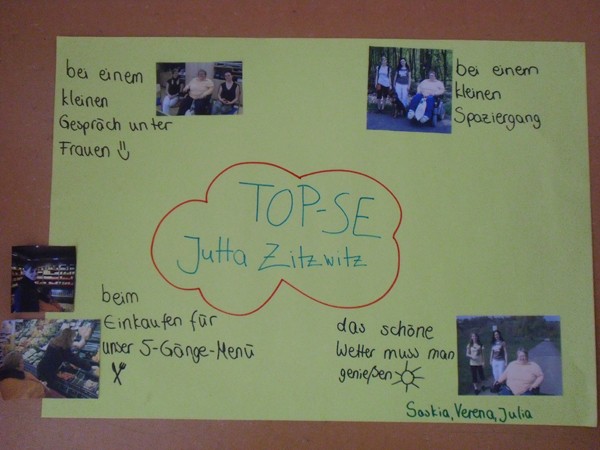 bei einem
kleinen
Gespräch unter
Frauen
bei einem
kleinen
Spaziergang
TOP-SE
Jutta Zitzwitz
beim
Einkaufen für
unser 5-Gänge-Menü
das schöne
Wetter muss man
genießen
Saskia, Verena, Julia